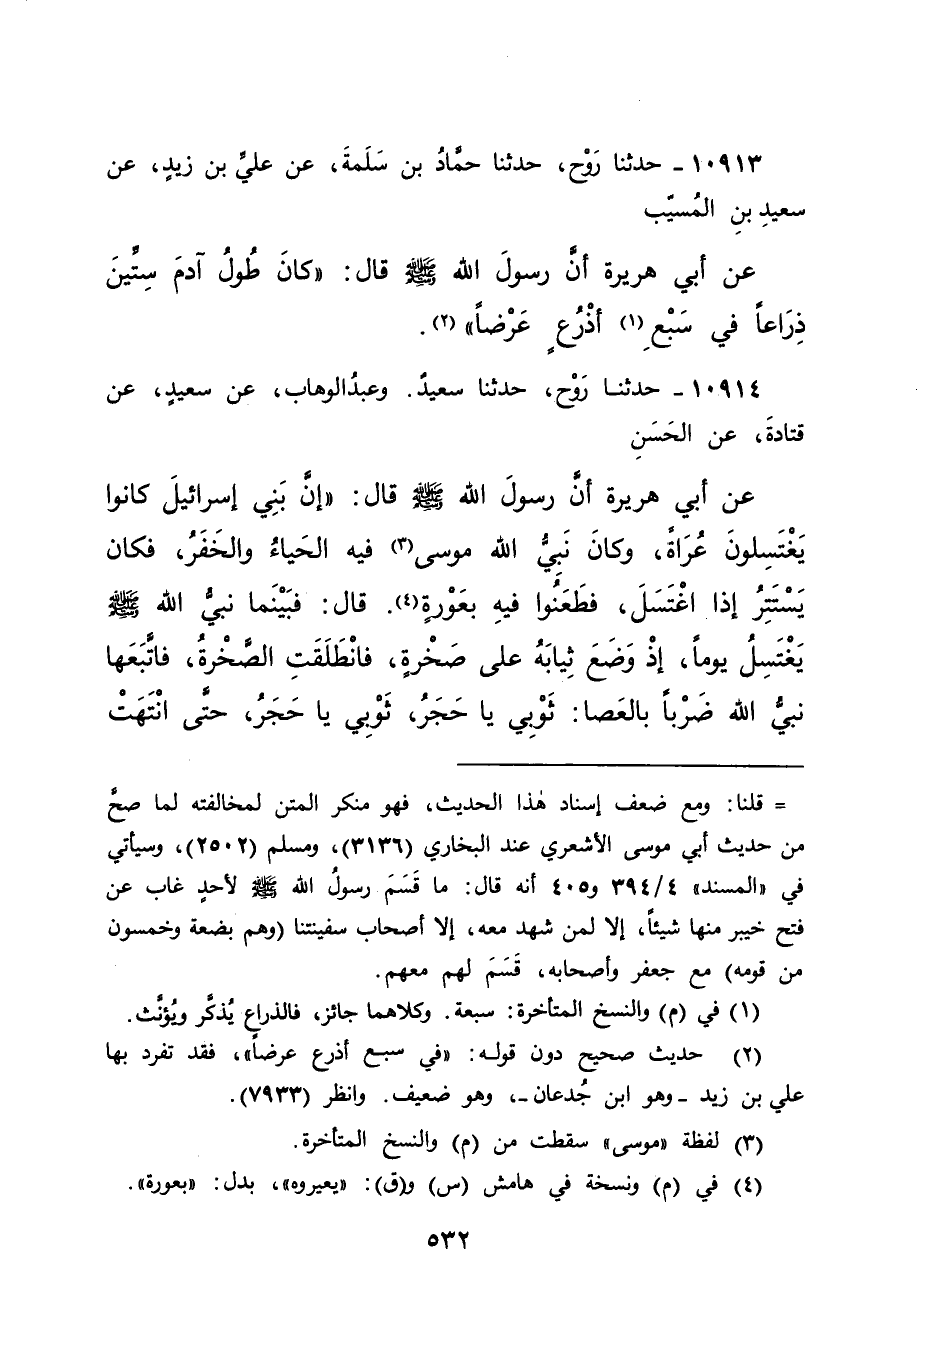 ١٠٩١٣ ـ حدثنا رَوْح، حدثنا حمَّادُ بن سَلَمةَ، عن عليِّ بن زيدٍ، عن
سعيدِ بنِ المُسيّب
عن أبي هريرة أنَّ رسولَ الله ﷺ قال: «كانَ طُولُ آدمَ سِتِّينَ
ذِرَاعاً في سَبْعِ(١) أذْرُعٍ عَرْضاً»(٢).
١٠٩١٤ ـ حدثنا رَوْح، حدثنا سعيدٌ. وعبدُالوهاب، عن سعيدٍ، عن
قتادةَ، عن الحَسَنِ
عن أبي هريرة أنَّ رسولَ الله ﷺ قال: «إنَّ بَنِي إسرائيلَ كانوا
يَغْتَسِلونَ عُرَاةً، وكانَ نَبِيُّ الله موسى(٣) فيه الحَياءُ والخَفَرُ، فكان
يَسْتَتِرُ إذا اغْتَسَلَ، فطَعَنُوا فيهِ بعَوْرةٍ(٤). قال: فبَيْنَما نبيُّ الله ﷺ
يَغْتَسِلُ يوماً، إذْ وَضَعَ ثِيابَهُ على صَخْرةٍ، فانْطَلَقَتِ الصَّخْرةُ، فاتَّبَعَها
نبيُّ الله ضَرْباً بالعَصا: ثَوْبِي يا حَجَرُ، ثَوْبِي يا حَجَرُ، حتَّى انْتَهَتْ
= قلنا: ومع ضعف إسناد هٰذا الحديث، فهو منكر المتن لمخالفته لما صحَّ
من حديث أبي موسى الأشعري عند البخاري (٣١٣٦)، ومسلم (٢٥٠٢)، وسيأتي
في «المسند» ٣٩٤/٤ و٤٠٥ أنه قال: ما قَسَمَ رسولُ الله ﷺ لأحدٍ غاب عن
فتح خيبر منها شيئاً، إلا لمن شهد معه، إلا أصحاب سفينتنا (وهم بضعة وخمسون
من قومه) مع جعفر وأصحابه، قَسَمَ لهم معهم.
(١) في (م) والنسخ المتأخرة: سبعة. وكلاهما جائز، فالذراع يُذكَّر ويُؤنَّث.
(٢) حديث صحيح دون قوله: «في سبع أذرع عرضاً»، فقد تفرد بها
علي بن زيد ـ وهو ابن جُدعان ـ، وهو ضعيف. وانظر (٧٩٣٣).
(٣) لفظة «موسى» سقطت من (م) والنسخ المتأخرة.
(٤) في (م) ونسخة في هامش (س) و(ق): «يعيروه»، بدل: «بعورة».
٥٣٢